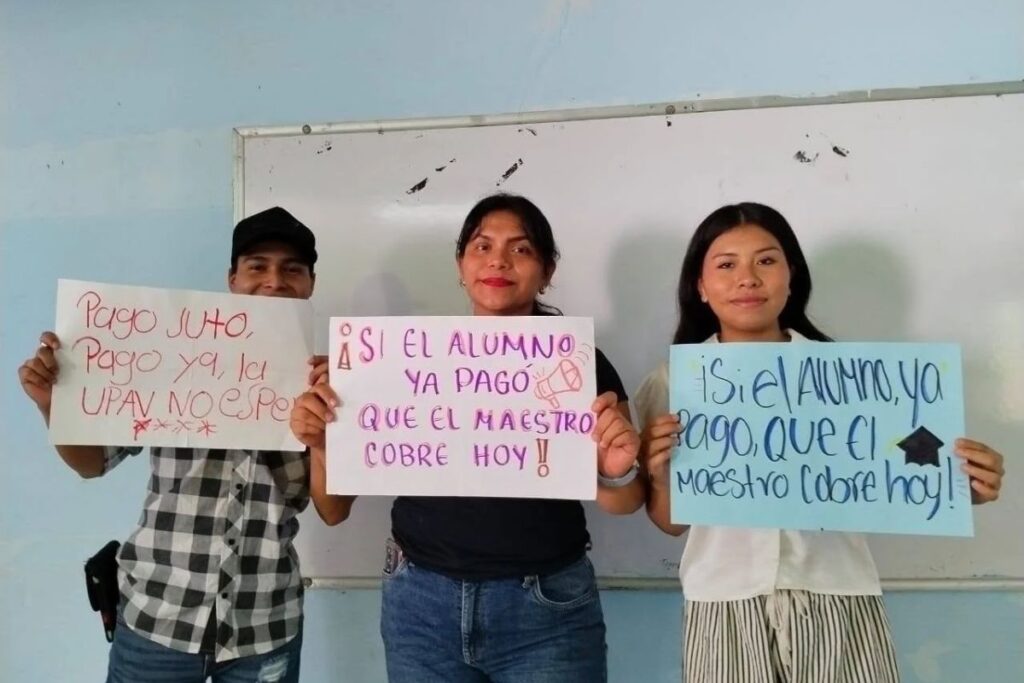 Pago Juto,
Pago ya, la
UPAV NO espe
¡SI EL ALUMNO
YA PAGÓ
QUE EL MAESTRO
COBRE HOY!
¡Si el AlUMNO, ya
Pago, QUE El
MAESTRO CobRE hoy!